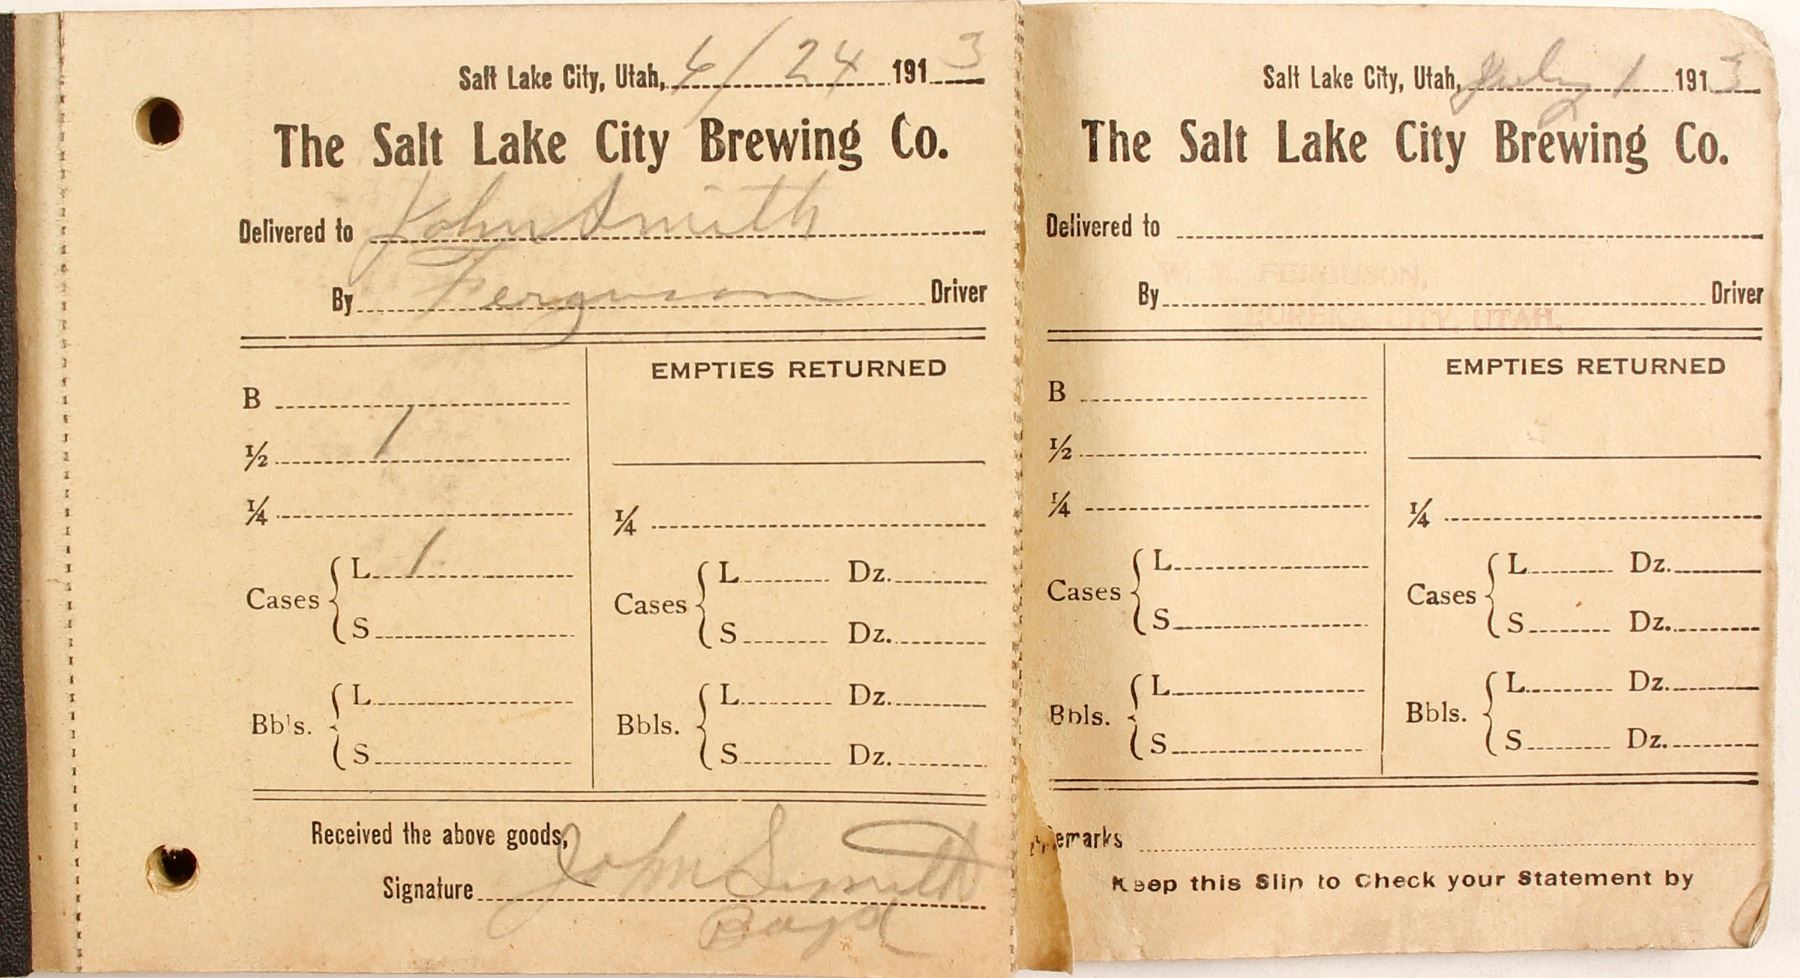 Salt Lake City, Utah, 6/24 1913
The Salt Lake City Brewing Co.
Delivered to John Smith
By Ferguson Driver
B
½ 1
¼
Cases { L 1
S
Bbls. { L
S
EMPTIES RETURNED
¼
Cases { L Dz.
S Dz.
Bbls. { L Dz.
S Dz.
Received the above goods,
Signature John Smith
Boyd
Salt Lake City, Utah, July 1 1913
The Salt Lake City Brewing Co.
Delivered to
W. M. FERGUSON,
By Driver
EUREKA CITY, UTAH.
B
½
¼
Cases { L
S
Bbls. { L
S
EMPTIES RETURNED
¼
Cases { L Dz.
S Dz.
Bbls. { L Dz.
S Dz.
Remarks
Keep this Slip to Check your Statement by